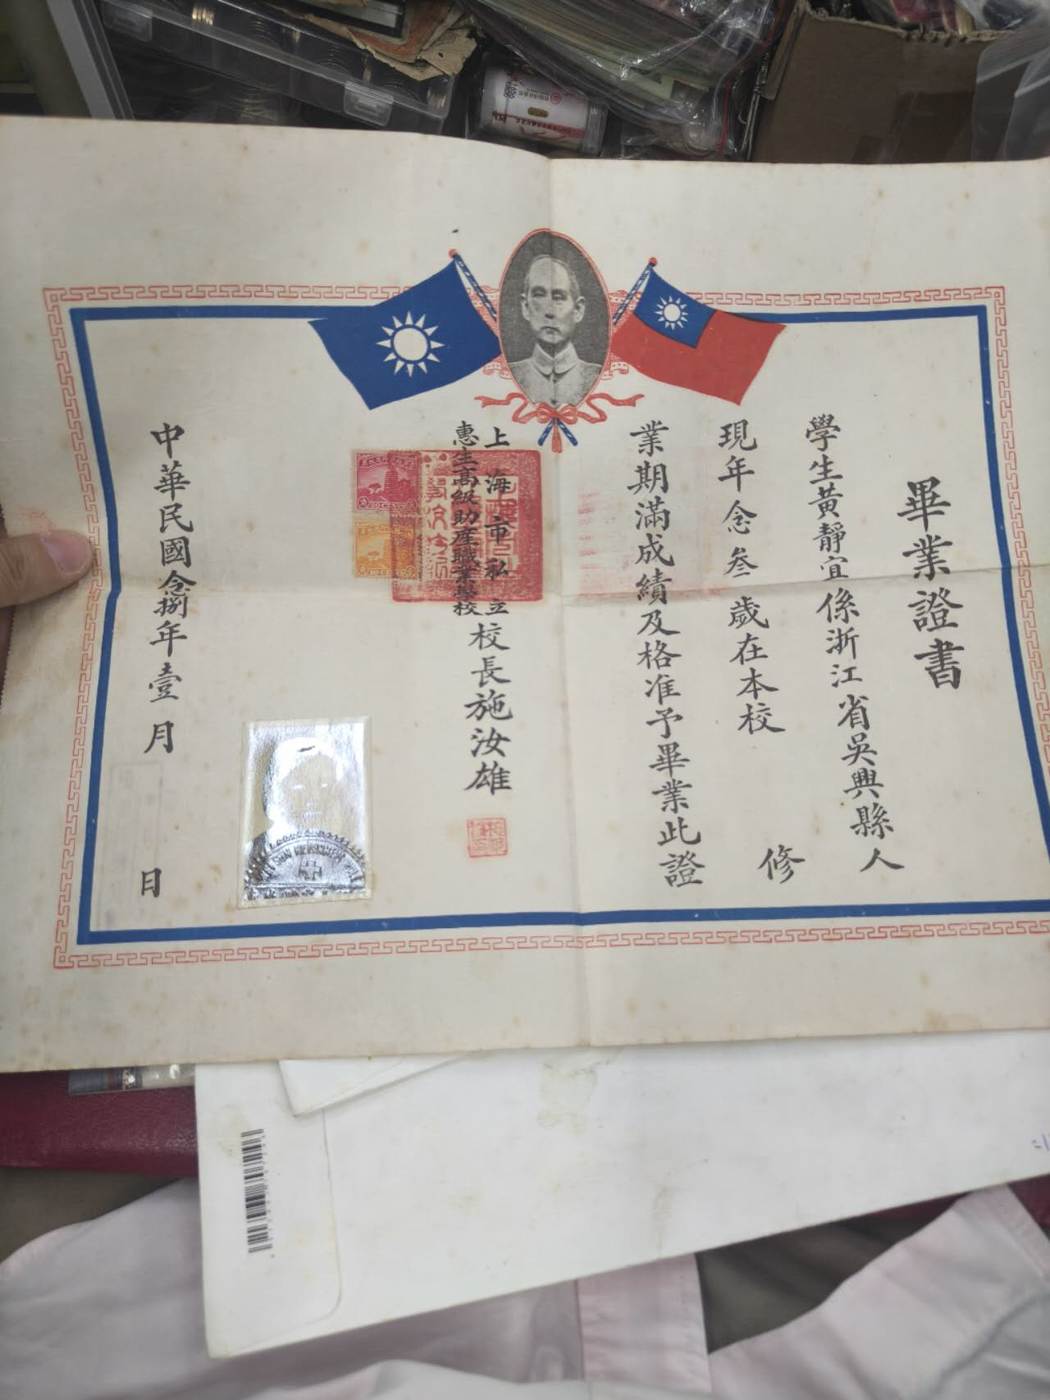 畢業證書
學生黃靜宜係浙江省吳興縣人
現年念叁歲在本校 修
業期滿成績及格准予畢業此證
上海市私立
惠生高級助產職業學校
校長施汝雄
中華民國念捌年壹月 日